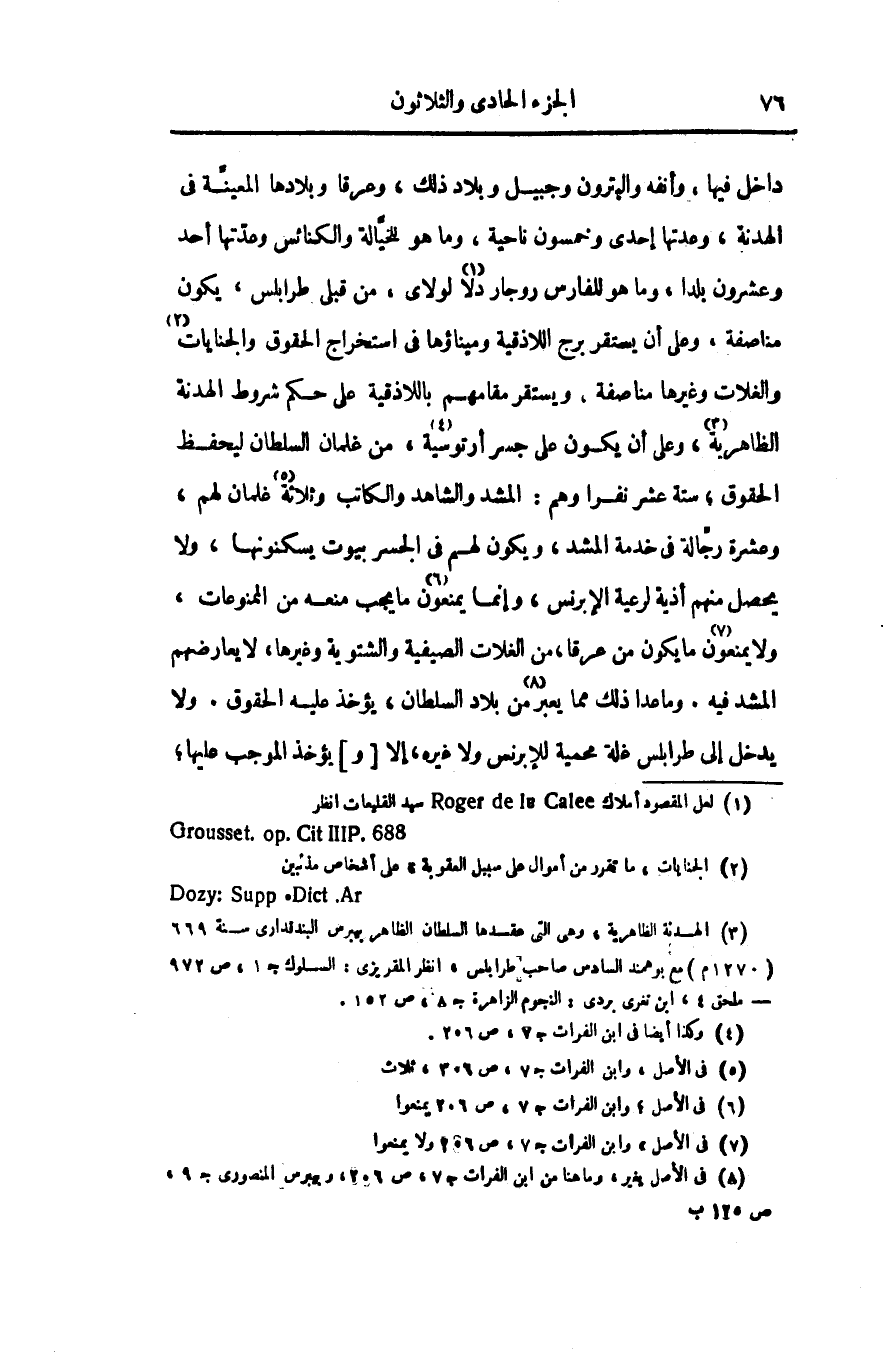 ٧٦ الجزء الحادى والثلاثون
داخل فيها ، وأنفه والبترون وجبيــل وبلاد ذلك ، وعرقا وبلادها المعينَّــة فى
الهدنة ، وعدتها إحدى وخمسون ناحية ، وما هو للخيَّالة والكنائس وعدّتها أحد
وعشرون بلدا ، وما هو للفارس روجار دلّا(١) لولاى ، من قبلى طرابلس ، يكون
مناصفة ، وعلى أن يستقر برج اللاذقية وميناؤها فى استخراج الحقوق والجنايات(٢)
والغلات وغيرها مناصفة ، ويستقر مقامهــم باللاذقية على حــكم شروط الهدنة
الظاهرية(٣) ، وعلى أن يكــون على جسر أرتوسية(٤) ، من غلمان السلطان ليحفــظ
الحقوق ؛ ستة عشر نفــرا وهم : المشد والشاهد والكاتب وثلاثة(٥) غلمان لهم ،
وعشرة رجّالة فى خدمة المشد ، ويكون لهــم فى الجسر بيوت يسكنونهــا ، ولا
يحصل منهم أذية لرعية الإبرنس ، وإنمــا يمنعون(٦) مايجب منعــه من الممنوعات ،
ولايمنعون(٧) مايكون من عرقا ،من الغلات الصيفية والشتوية وغيرها، لايعارضهم
المشد فيه . وماعدا ذلك مما يعبر(٨) من بلاد السلطان ، يؤخذ عليــه الحقوق . ولا
يدخل إلى طرابلس غلة محمية للإبرنس ولا غيره، إلا [ و ] يؤخذ الموجب عليها ؛
(١) لعل المقصود أملاك Roger de la Calee سيد القليعات انظر
Grousset. op. Cit IIIP. 688
(٢) الجنايات ، ما تقرر من أموال على سبيل العقوبة ؛ على أشخاص مذنبين
Dozy: Supp .Dict .Ar
(٣) الهــدنة الظاهرية ، وهى التى عقــدها السلطان الظاهر بيبرس البندقدارى ســنة ٦٦٩
( ١٢٧٠م ) مع بوهمند السادس صاحب طرابلس ، انظر المقريزى : السلوك جـ ١ ، ص ٩٧٢
— ملحق ٤ ، ابن تغرى بردى : النجوم الزاهرة جـ ٨ ، ص ١٥٢ .
(٤) وكذا أيضا فى ابن الفرات جـ ٧ ، ص ٢٠٦ .
(٥) فى الأصل ، وابن الفرات جـ ٧ ، ص ٢٠٦ ، ثلاث
(٦) فى الأصل ؛ وابن الفرات جـ ٧ ، ص ٢٠٦ يمنعوا
(٧) فى الأصل ، وابن الفرات جـ ٧ ، ص ٢٠٦ ولا يمنعوا
(٨) فى الأصل يغير ، وماهنا من ابن الفرات جـ ٧ ، ص ٢٠٦ ، وبيبرس المنصورى جـ ٩ ،
ص ١٢٥ ب